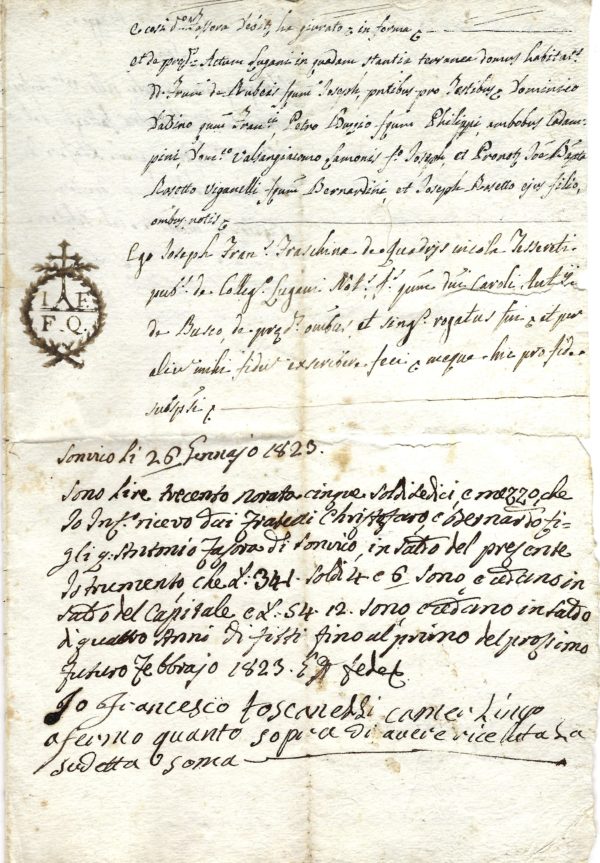 e così d.o Assora Debit.e ha giurato in forma
et de pred.s Actum Lugani in quadam stantia terranea domus habitat.s
D. Fran.ci de Rubeis q.m Joseph, p̄ntibus pro Testibus Dominico
Vadino qum Fran.ci Petro Bugio q.m Philippi, ambobus Cadem-
pini, Dom.co Valsangiacomo Lamonis f. Joseph, et Pronot.s Joe Bapta
Rosetto Viganelli q.m Bernardini, et Joseph Rosetto ejus filio,
omibus notis
Ego Joseph Fran.s Fraschina de Quadrys incola Tessereti
pub.s de Colleg.o Lugani Not.s f. qum Dni Caroli
de Busco, de pred.s omibus et sing.s rogatus fui et per
aliu mihi fidu exscribere feci meque hic pro fide
subspsi
I F
F. Q.
Sonvico li 26 Gennajo 1823.
Sono lire trecento novata cinque soldi sedici e mezzo che
Io Inf.o ricevo dai Fratelli Christofaro e Bernardo fi-
gli q. Antonio Fasora di Sonvico, in saldo del presente
Istrumento che £. 341. Soldi 4 e 6 sono e cadano in
saldo del Capitale e £. 54. 12. sono e cadano in saldo
di quattro Anni di fitti fino al primo del prosimo
futuro Febbrajo 1823. In fede
Io Francesco Toscanelli camerlingo
afermo quanto sopra di avere riceuta la
sudetta soma